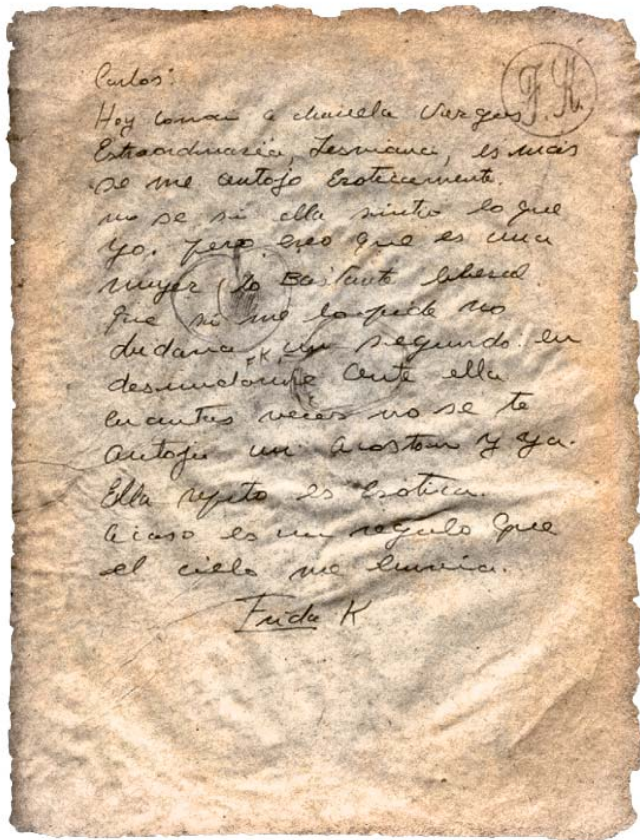 Carlos:
F.K.
Hoy conocí a chavela Vargas.
Extraordinaria, Lesviana, es más
se me antojo Eroticamente.
no se si ella sintio lo que
yo. pero creo que es una
mujer lo Bastante liberal
que si me lo pide no
dudaria un segundo en
F.K.
desnudarme ante ella
cuantas veces no se te
antoja un acoston y ya.
Ella repito es Erotica.
acaso es un regalo que
el cielo me envia.
Frida K